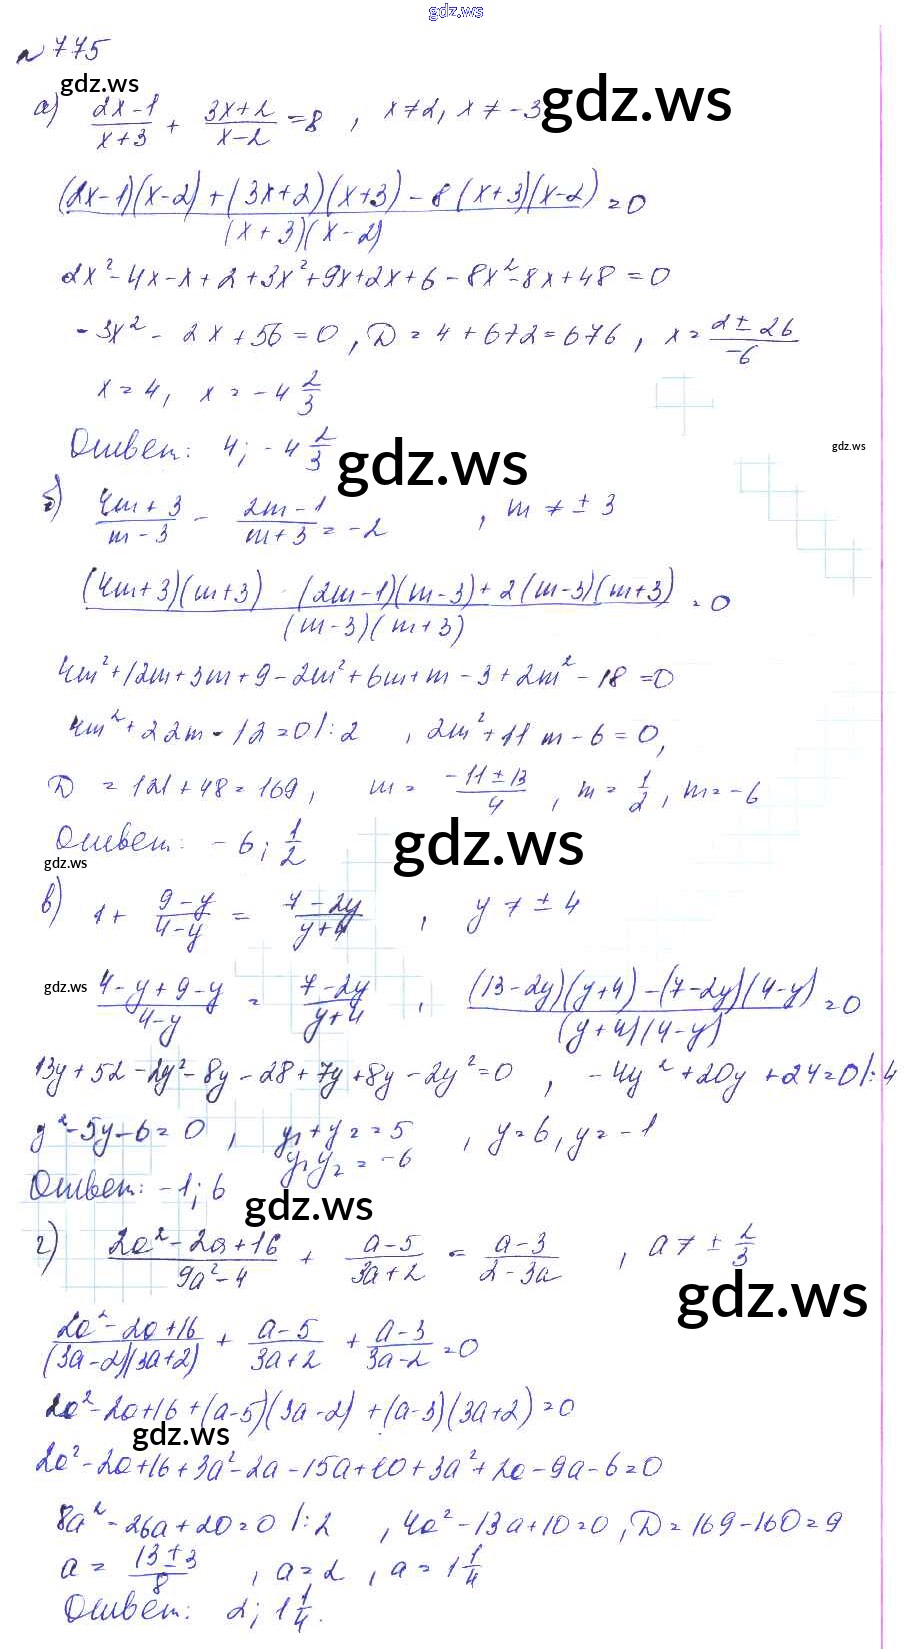 gdz.ws
№ 775
gdz.ws
а) (2x-1)/(x+3) + (3x+2)/(x-2) = 8 , x≠2, x ≠ -3
gdz.ws
((2x-1)(x-2) + (3x+2)(x+3) - 8(x+3)(x-2))/((x+3)(x-2)) = 0
2x² - 4x - x + 2 + 3x² + 9x + 2x + 6 - 8x² - 8x + 48 = 0
-3x² - 2x + 56 = 0 , D = 4 + 672 = 676 , x = (2 ± 26)/(-6)
x = 4, x = -4 2/3
Ответ: 4; -4 2/3
gdz.ws
gdz.ws
б) (4m+3)/(m-3) - (2m-1)/(m+3) = -2 , m ≠ ± 3
((4m+3)(m+3) - (2m-1)(m-3) + 2(m-3)(m+3))/((m-3)(m+3)) = 0
4m² + 12m + 3m + 9 - 2m² + 6m + m - 3 + 2m² - 18 = 0
4m² + 22m - 12 = 0 |:2 , 2m² + 11m - 6 = 0,
D = 121 + 48 = 169, m = (-11 ± 13)/4 , m = 1/2 , m = -6
Ответ: -6; 1/2
gdz.ws
gdz.ws
в) 1 + (9-y)/(4-y) = (7-2y)/(y+4) , y ≠ ± 4
gdz.ws
(4-y+9-y)/(4-y) = (7-2y)/(y+4) , ((13-2y)(y+4) - (7-2y)(4-y))/((y+4)(4-y)) = 0
13y + 52 - 2y² - 8y - 28 + 7y + 8y - 2y² = 0 , -4y² + 20y + 24 = 0 |:4
y² - 5y - 6 = 0 , y₁ + y₂ = 5 , y = 6, y = -1
y₁ y₂ = -6
Ответ: -1; 6
gdz.ws
г) (2a² - 2a + 16)/(9a² - 4) + (a-5)/(3a+2) = (a-3)/(2-3a) , a ≠ ± 2/3
gdz.ws
(2a² - 2a + 16)/((3a-2)(3a+2)) + (a-5)/(3a+2) + (a-3)/(3a-2) = 0
2a² - 2a + 16 + (a-5)(3a-2) + (a-3)(3a+2) = 0
gdz.ws
2a² - 2a + 16 + 3a² - 2a - 15a + 10 + 3a² + 2a - 9a - 6 = 0
8a² - 26a + 20 = 0 |:2 , 4a² - 13a + 10 = 0, D = 169 - 160 = 9
a = (13 ± 3)/8 , a = 2 , a = 1 1/4
Ответ: 2; 1 1/4.